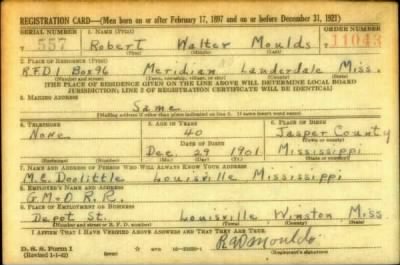 REGISTRATION CARD—(Men born on or after February 17, 1897 and on or before December 31, 1921)
SERIAL NUMBER 1. NAME (Print) ORDER NUMBER
T 557 Robert Walter Moulds T 11043
(First) (Middle) (Last)
2. PLACE OF RESIDENCE (Print)
R.F.D 1 Box 96 Meridian Lauderdale Miss.
(Number and street) (Town, township, village, or city) (County) (State)
[THE PLACE OF RESIDENCE GIVEN ON THE LINE ABOVE WILL DETERMINE LOCAL BOARD
JURISDICTION; LINE 2 OF REGISTRATION CERTIFICATE WILL BE IDENTICAL]
3. MAILING ADDRESS
Same
[Mailing address if other than place indicated on line 2. If same insert word same]
4. TELEPHONE 5. AGE IN YEARS 6. PLACE OF BIRTH
None 40 Jasper County
DATE OF BIRTH (Town or county)
Dec. 29 1901 Mississippi
(Exchange) (Number) (Mo.) (Day) (Yr.) (State or country)
7. NAME AND ADDRESS OF PERSON WHO WILL ALWAYS KNOW YOUR ADDRESS
M.E. Doolittle Louisville Mississippi
8. EMPLOYER'S NAME AND ADDRESS
G.M.&O. R.R.
9. PLACE OF EMPLOYMENT OR BUSINESS
Depot St. Louisville Winston Miss
(Number and street or R. F. D. number) (Town) (County) (State)
I AFFIRM THAT I HAVE VERIFIED ABOVE ANSWERS AND THAT THEY ARE TRUE.
D. S. S. Form 1
(Revised 1-1-42) (over)
(Registrant's signature)